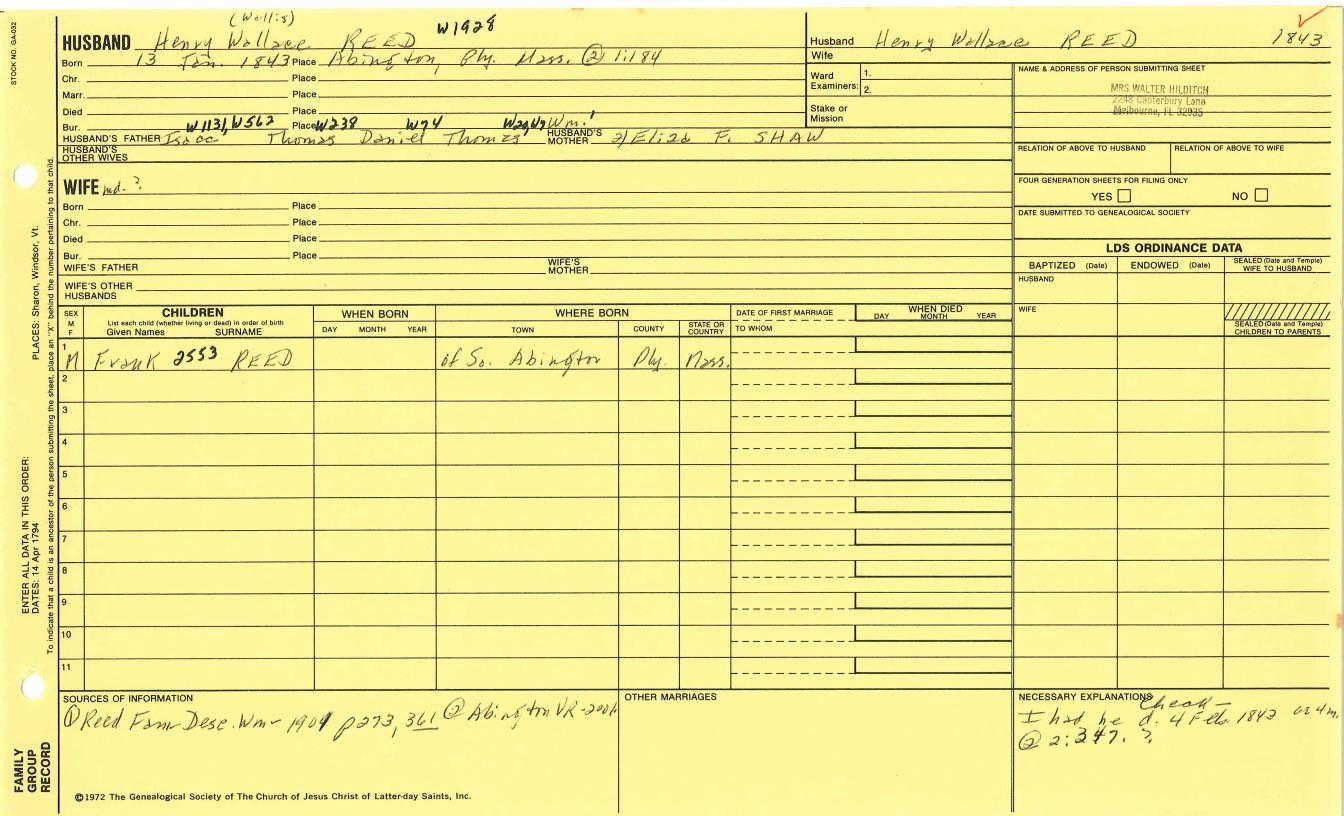 STOCK NO. GA-032
(Wallis)
W1928
HUSBAND Henry Wallace REED
Born 13 Jan. 1843 Place Abington, Ply. Mass. ② 1:184
Chr. Place
Marr. Place
Died Place
Bur. W1131, W562 Place W238 W74 W29, W7 Wm.¹
HUSBAND'S FATHER Isaac Thomas Daniel Thomas HUSBAND'S MOTHER 2) Eliza F. SHAW
HUSBAND'S OTHER WIVES
WIFE md. ?
Born Place
Chr. Place
Died Place
Bur. Place
WIFE'S FATHER WIFE'S MOTHER
WIFE'S OTHER HUSBANDS
Husband Henry Wallace REED 1843
Wife
Ward Examiners: 1.
2.
Stake or Mission
NAME & ADDRESS OF PERSON SUBMITTING SHEET
MRS WALTER HILDITCH
2248 Canterbury Lane
Melbourne, FL 32935
RELATION OF ABOVE TO HUSBAND RELATION OF ABOVE TO WIFE
FOUR GENERATION SHEETS FOR FILING ONLY
YES NO
DATE SUBMITTED TO GENEALOGICAL SOCIETY
LDS ORDINANCE DATA
BAPTIZED (Date) ENDOWED (Date) SEALED (Date and Temple) WIFE TO HUSBAND
HUSBAND
WIFE
SEALED (Date and Temple) CHILDREN TO PARENTS
SEX M F
CHILDREN
List each child (whether living or dead) in order of birth
Given Names SURNAME
WHEN BORN
DAY MONTH YEAR
WHERE BORN
TOWN COUNTY STATE OR COUNTRY
DATE OF FIRST MARRIAGE
TO WHOM
WHEN DIED
DAY MONTH YEAR
1 M Frank 2553 REED of So. Abington Ply. Mass.
2
3
4
5
6
7
8
9
10
11
SOURCES OF INFORMATION
① Reed Fam Desc. Wm - 1901 p273, 361 ② Abington VR-
OTHER MARRIAGES
NECESSARY EXPLANATIONS
Check -
I had he d. 4 Feb. 1843 ae 4 m.
② 2:347. ?
©1972 The Genealogical Society of The Church of Jesus Christ of Latter-day Saints, Inc.
PLACES: Sharon, Windsor, Vt.
ENTER ALL DATA IN THIS ORDER:
DATES: 14 Apr 1794
To indicate that a child is an ancestor of the person submitting the sheet, place an "X" behind the number pertaining to that child.
FAMILY GROUP RECORD